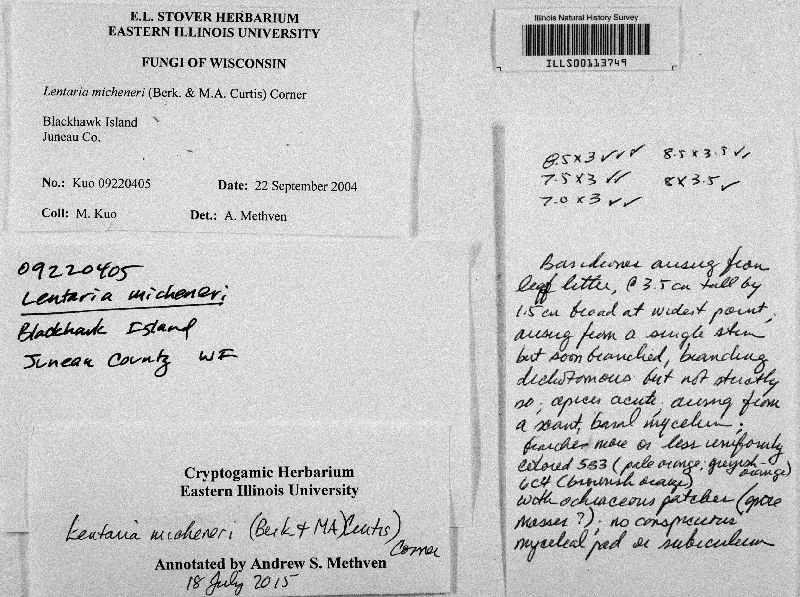 E.L. STOVER HERBARIUM
EASTERN ILLINOIS UNIVERSITY
FUNGI OF WISCONSIN
Lentaria micheneri (Berk. & M.A. Curtis) Corner
Blackhawk Island
Juneau Co.
No.: Kuo 09220405 Date: 22 September 2004
Coll: M. Kuo Det.: A. Methven
Illinois Natural History Survey
ILLS00113749
8.5 x 3 ✓✓✓ 8.5 x 3.5 ✓✓
7.5 x 3 ✓✓ 8 x 3.5 ✓
7.0 x 3 ✓✓
09220405
Lentaria micheneri
Blackhawk Island
Juneau County WI
Basidiomes arising from
leaf litter, @ 3.5 cm tall by
1.5 cm broad at widest point;
arising from a single stem
but soon branched, branching
dichotomous but not strictly
so; apices acute; arising from
a scant, basal mycelium;
branches more or less uniformly
colored 5B3 (pale orange; greyish-orange)
6C4 (brownish orange)
with ochraceous patches (spore
masses?); no conspicuous
mycelial pad or subiculum
Cryptogamic Herbarium
Eastern Illinois University
Lentaria micheneri (Berk & MA Curtis)
Corner
Annotated by Andrew S. Methven
18 July 2015